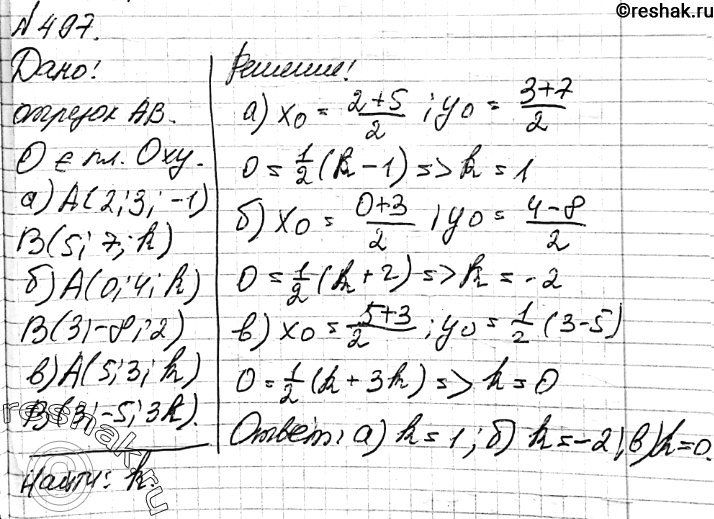 ©reshak.ru
№ 497.
Дано:
отрезок AB.
O ∈ пл. Oxy.
а) A(2; 3; -1)
B(5; 7; k)
б) A(0; 4; k)
B(3; -8; 2)
в) A(5; 3; k)
B(3; -5; 3k).
Найти: k.
Решение:
а) x₀ = (2+5)/2 ; y₀ = (3+7)/2
0 = 1/2 (k - 1) => k = 1
б) x₀ = (0+3)/2 ; y₀ = (4-8)/2
0 = 1/2 (k + 2) => k = -2
в) x₀ = (5+3)/2 ; y₀ = 1/2 (3-5)
0 = 1/2 (k + 3k) => k = 0
Ответ: а) k = 1; б) k = -2; в) k = 0.
reshak.ru